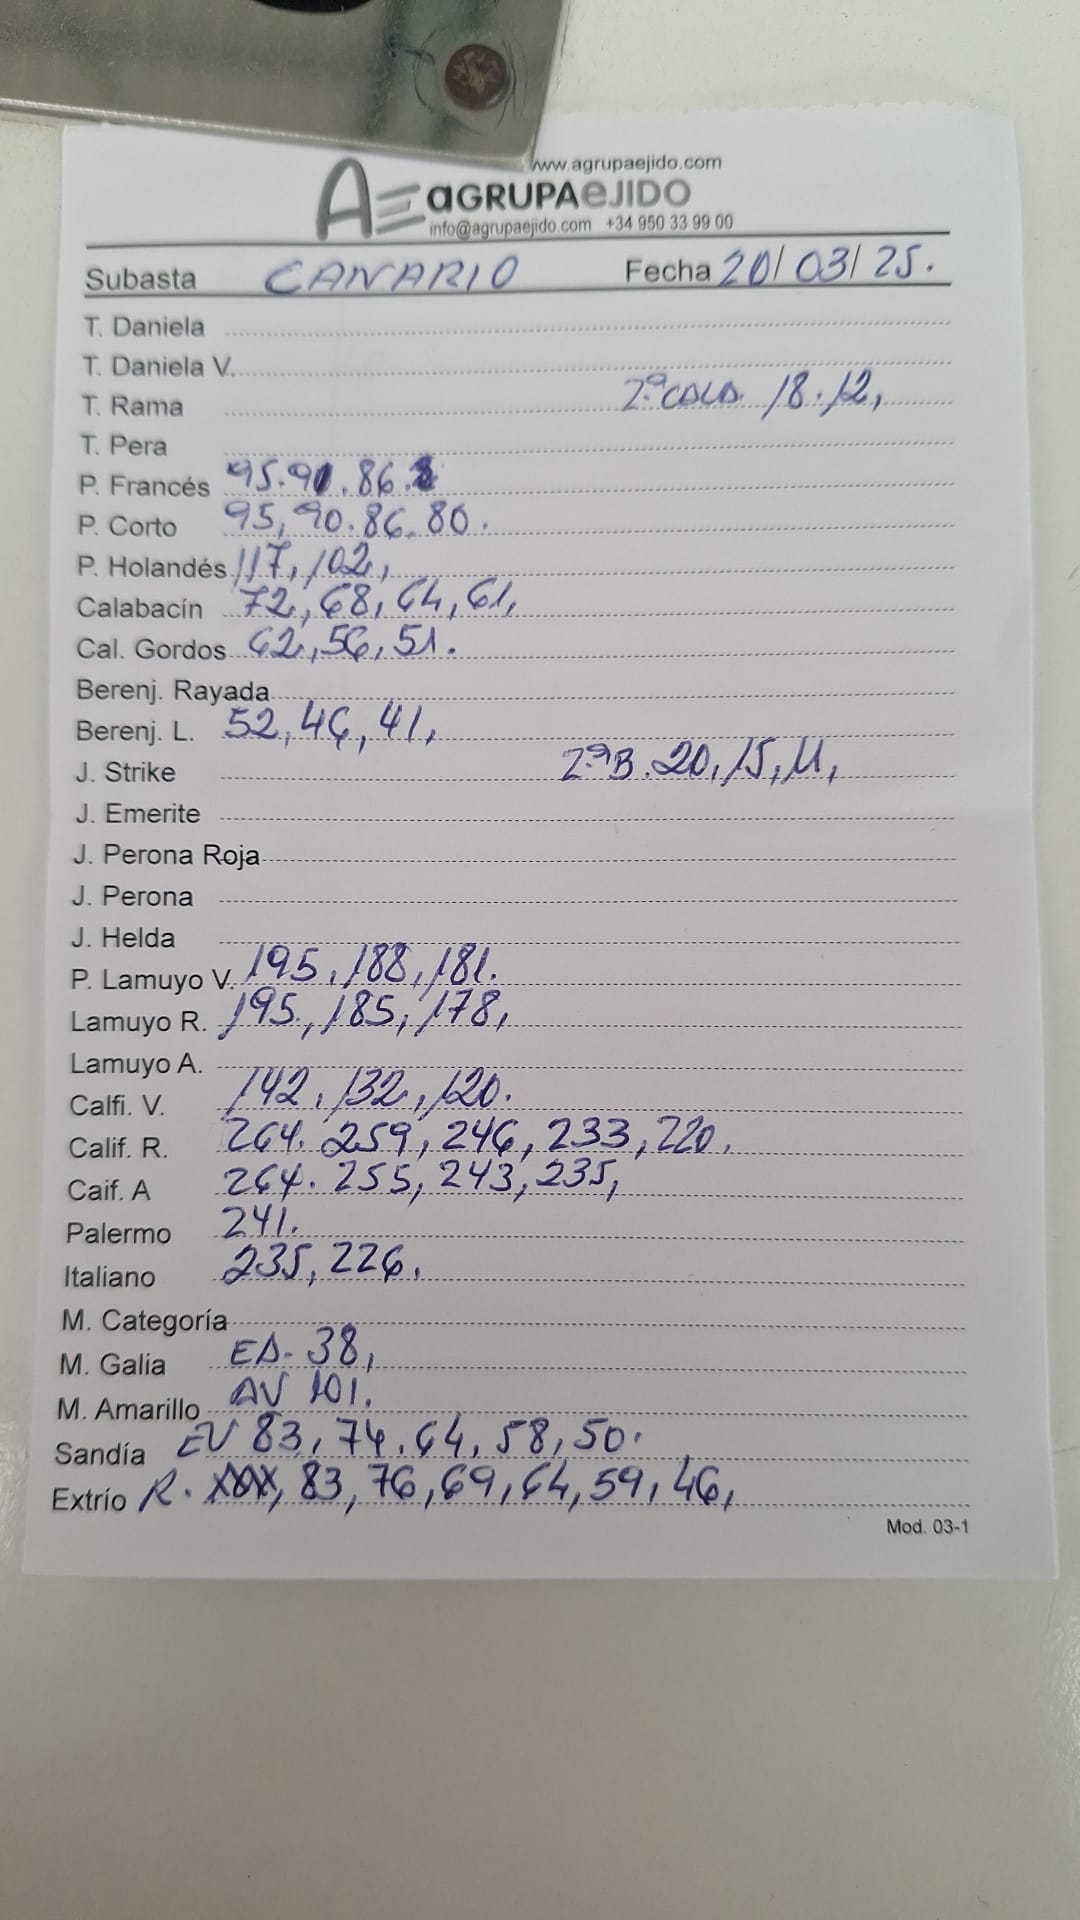 www.agrupaejido.com
AE aGRUPAeJIDO
info@agrupaejido.com +34 950 33 99 00
Subasta CANARIO Fecha 20/03/25.
T. Daniela
T. Daniela V.
T. Rama 2ª CALA. 18.12,
T. Pera
P. Francés 95.91.86.
P. Corto 95,90.86.80.
P. Holandés 117,102,
Calabacín 72,68,64,61,
Cal. Gordos 62,56,51.
Berenj. Rayada
Berenj. L. 52,46,41,
J. Strike 2ªB.20,15,11,
J. Emerite
J. Perona Roja
J. Perona
J. Helda
P. Lamuyo V. 195,188,181.
Lamuyo R. 195,185,178,
Lamuyo A.
Calfi. V. 142,132,120.
Calif. R. 264.259,246,233,220.
Caif. A 264.255,243,235,
Palermo 241.
Italiano 235,226.
M. Categoría
M. Galia EA-38,
M. Amarillo AV 101.
Sandía EV 83,74.64,58,50.
Extrío R. 83,76,69,64,59,46,
Mod. 03-1